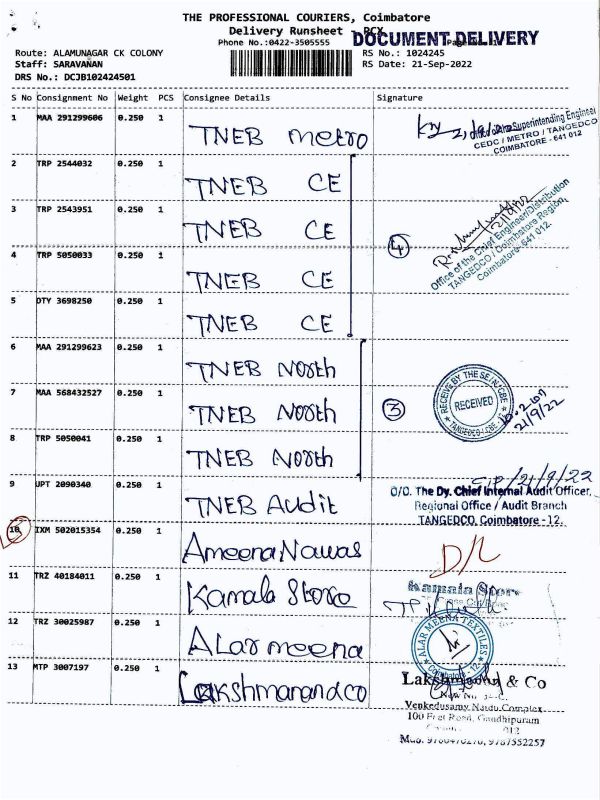 THE PROFESSIONAL COURIERS, Coimbatore
Delivery Runsheet - PCX
DOCUMENT DELIVERY
Phone No.:0422-3505555
Route: ALAMUNAGAR CK COLONY
RS No.: 1024245
Staff: SARAVANAN
RS Date: 21-Sep-2022
DRS No.: DCJB102424501
S No Consignment No Weight PCS Consignee Details Signature
1 MAA 291299606 0.250 1 TNEB metro
21/9/22
Office of the Superintending Engineer
CEDC / METRO / TANGEDCO
COIMBATORE - 641 012
2 TRP 2544032 0.250 1 TNEB CE
3 TRP 2543951 0.250 1 TNEB CE
4 TRP 5050033 0.250 1 TNEB CE
5 DTY 3698250 0.250 1 TNEB CE
4
21/9/22
Office of the Chief Engineer/Distribution
TANGEDCO / Coimbatore Region,
Coimbatore- 641 012.
6 MAA 291299623 0.250 1 TNEB North
7 MAA 568432527 0.250 1 TNEB North
8 TRP 5050041 0.250 1 TNEB North
3
RECEIVE BY THE SE/N/CBE
RECEIVED
TANGEDCO-CBE - 12
21/9/22
9 UPT 2090340 0.250 1 TNEB Audit
21/9/22
O/O. The Dy. Chief Internal Audit Officer,
Regional Office / Audit Branch
TANGEDCO, Coimbatore - 12.
10 IXM 502015354 0.250 1 Ameena Nawas
D/L
11 TRZ 40184011 0.250 1 Kamala Store
Kamala Store
12 TRZ 30025987 0.250 1 ALar meena
ALAR MEENA TEXTILES
Coimbatore - 12
13 MTP 3007197 0.250 1 Lakshmanandco
& Co
Venkedusamy Naidu Complex
100 Feet Road, Gandhipuram
012